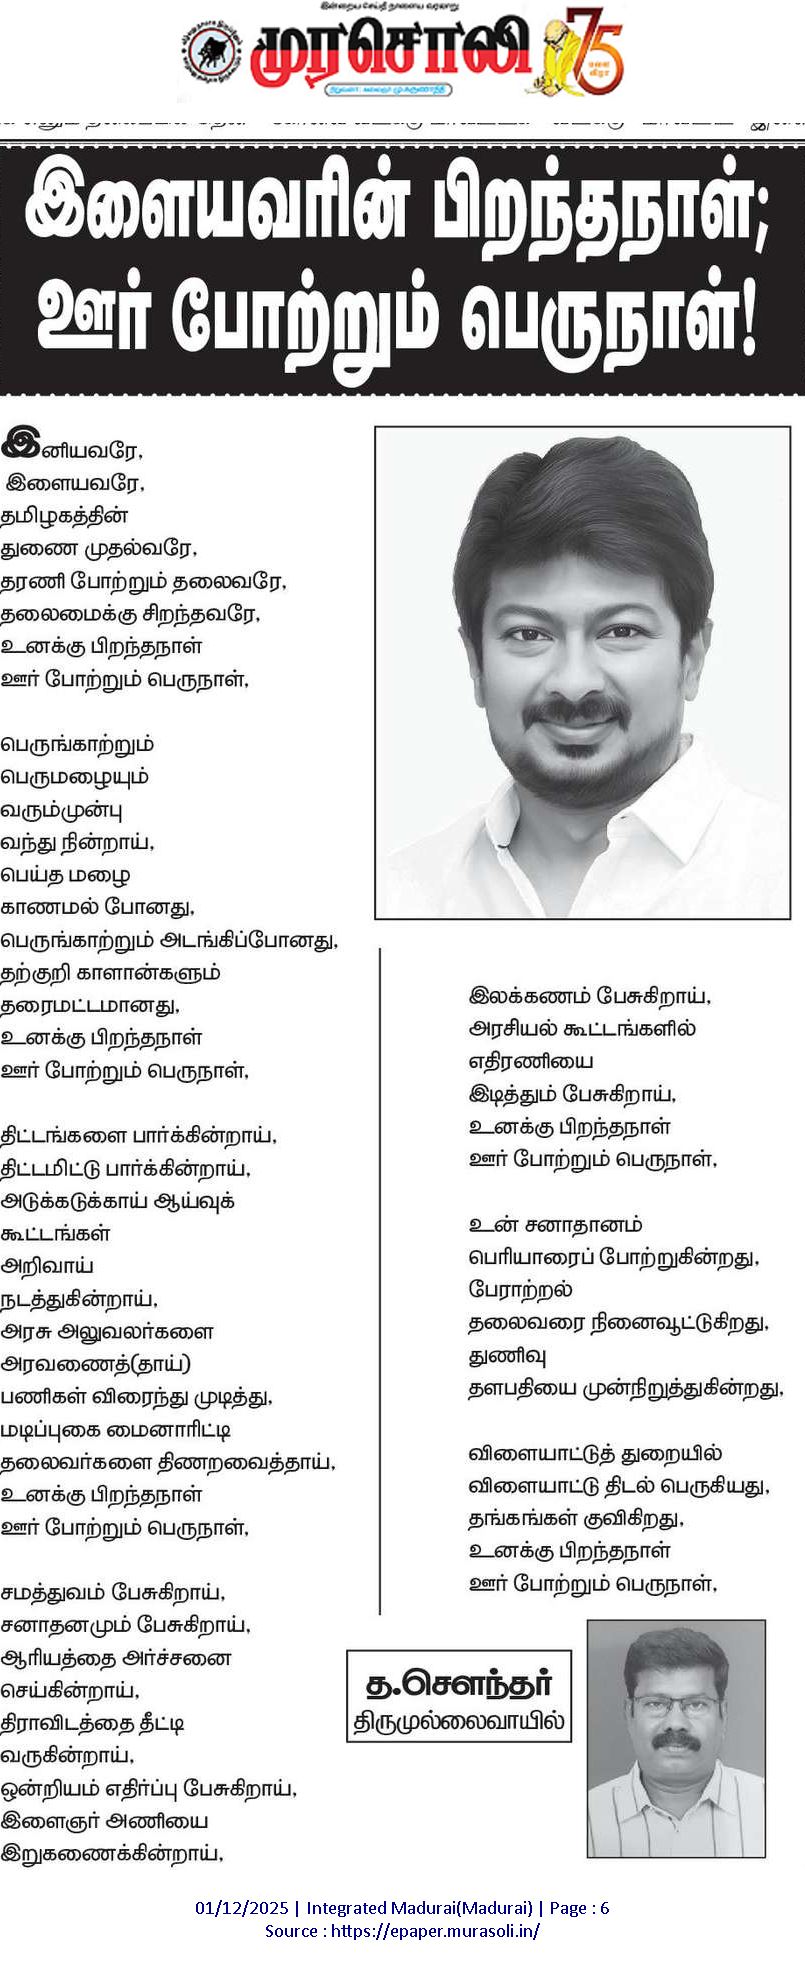 இன்றைய செய்தி நாளைய வரலாறு
முரசொலி
75
பவள விழா
நிறுவனர் : கலைஞர் மு.கருணாநிதி
இளையவரின் பிறந்தநாள்;
ஊர் போற்றும் பெருநாள்!
இனியவரே,
இளையவரே,
தமிழகத்தின்
துணை முதல்வரே,
தரணி போற்றும் தலைவரே,
தலைமைக்கு சிறந்தவரே,
உனக்கு பிறந்தநாள்
ஊர் போற்றும் பெருநாள்,
பெருங்காற்றும்
பெருமழையும்
வரும்முன்பு
வந்து நின்றாய்,
பெய்த மழை
காணமல் போனது,
பெருங்காற்றும் அடங்கிப்போனது,
தற்குறி காளான்களும்
தரைமட்டமானது,
உனக்கு பிறந்தநாள்
ஊர் போற்றும் பெருநாள்,
திட்டங்களை பார்க்கின்றாய்,
திட்டமிட்டு பார்க்கின்றாய்,
அடுக்கடுக்காய் ஆய்வுக்
கூட்டங்கள்
அறிவாய்
நடத்துகின்றாய்,
அரசு அலுவலர்களை
அரவணைத்(தாய்)
பணிகள் விரைந்து முடித்து,
மடிப்புகை மைனாரிட்டி
தலைவர்களை திணறவைத்தாய்,
உனக்கு பிறந்தநாள்
ஊர் போற்றும் பெருநாள்,
சமத்துவம் பேசுகிறாய்,
சனாதனமும் பேசுகிறாய்,
ஆரியத்தை அர்ச்சனை
செய்கின்றாய்,
திராவிடத்தை தீட்டி
வருகின்றாய்,
ஒன்றியம் எதிர்ப்பு பேசுகிறாய்,
இளைஞர் அணியை
இறுகணைக்கின்றாய்,
இலக்கணம் பேசுகிறாய்,
அரசியல் கூட்டங்களில்
எதிரணியை
இடித்தும் பேசுகிறாய்,
உனக்கு பிறந்தநாள்
ஊர் போற்றும் பெருநாள்,
உன் சனாதானம்
பெரியாரைப் போற்றுகின்றது,
பேராற்றல்
தலைவரை நினைவூட்டுகிறது,
துணிவு
தளபதியை முன்நிறுத்துகின்றது,
விளையாட்டுத் துறையில்
விளையாட்டு திடல் பெருகியது,
தங்கங்கள் குவிகிறது,
உனக்கு பிறந்தநாள்
ஊர் போற்றும் பெருநாள்,
த.சௌந்தர்
திருமுல்லைவாயில்
01/12/2025 | Integrated Madurai(Madurai) | Page : 6
Source : https://epaper.murasoli.in/